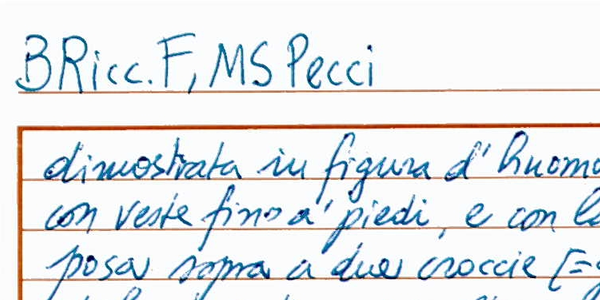 BRicc.F, MS Pecci
dimostrata in figura d' huomo
con veste fino a' piedi, e con l
posar sopra a due croccie [=